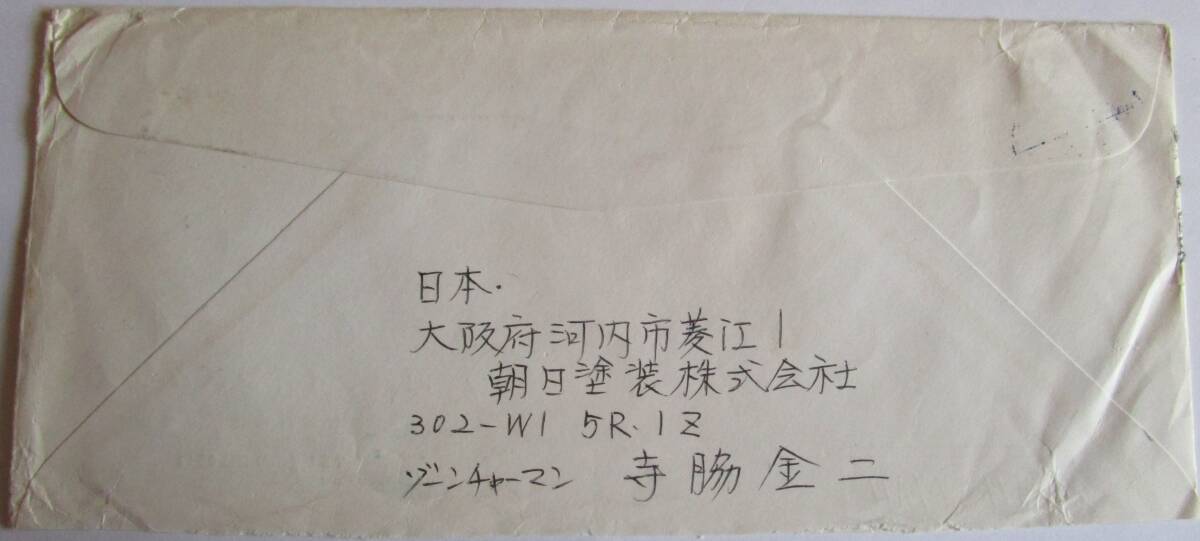 日本.
大阪府河内市菱江1
朝日塗装株式会社
302-W1 5R.1Z
ゾーンチャーマン 寺脇金二